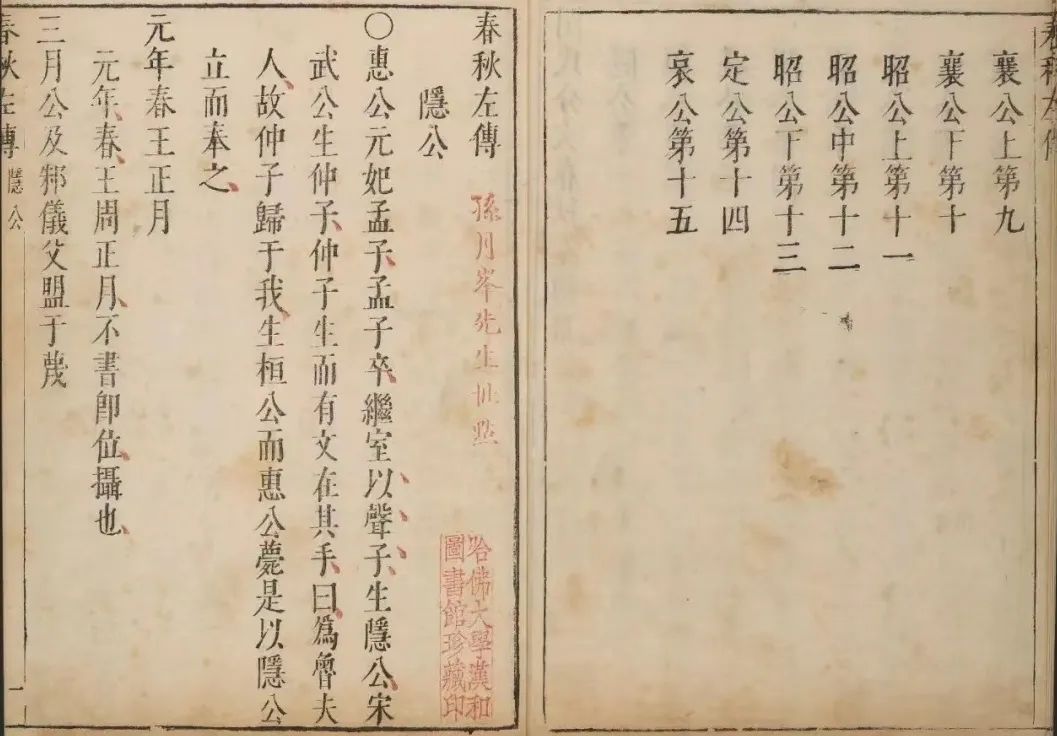 春秋左傳
襄公上第九
襄公下第十
昭公上第十一
昭公中第十二
昭公下第十三
定公第十四
哀公第十五
春秋左傳
孫月峯先生批點
哈佛大學漢和
圖書館珍藏印
隱公
〇惠公元妃孟子孟子卒繼室以聲子生隱公宋
武公生仲子仲子生而有文在其手曰爲魯夫
人故仲子歸于我生桓公而惠公薨是以隱公
立而奉之
元年春王正月
元年春王周正月不書卽位攝也
三月公及邾儀父盟于蔑
春秋左傳 隱公 一